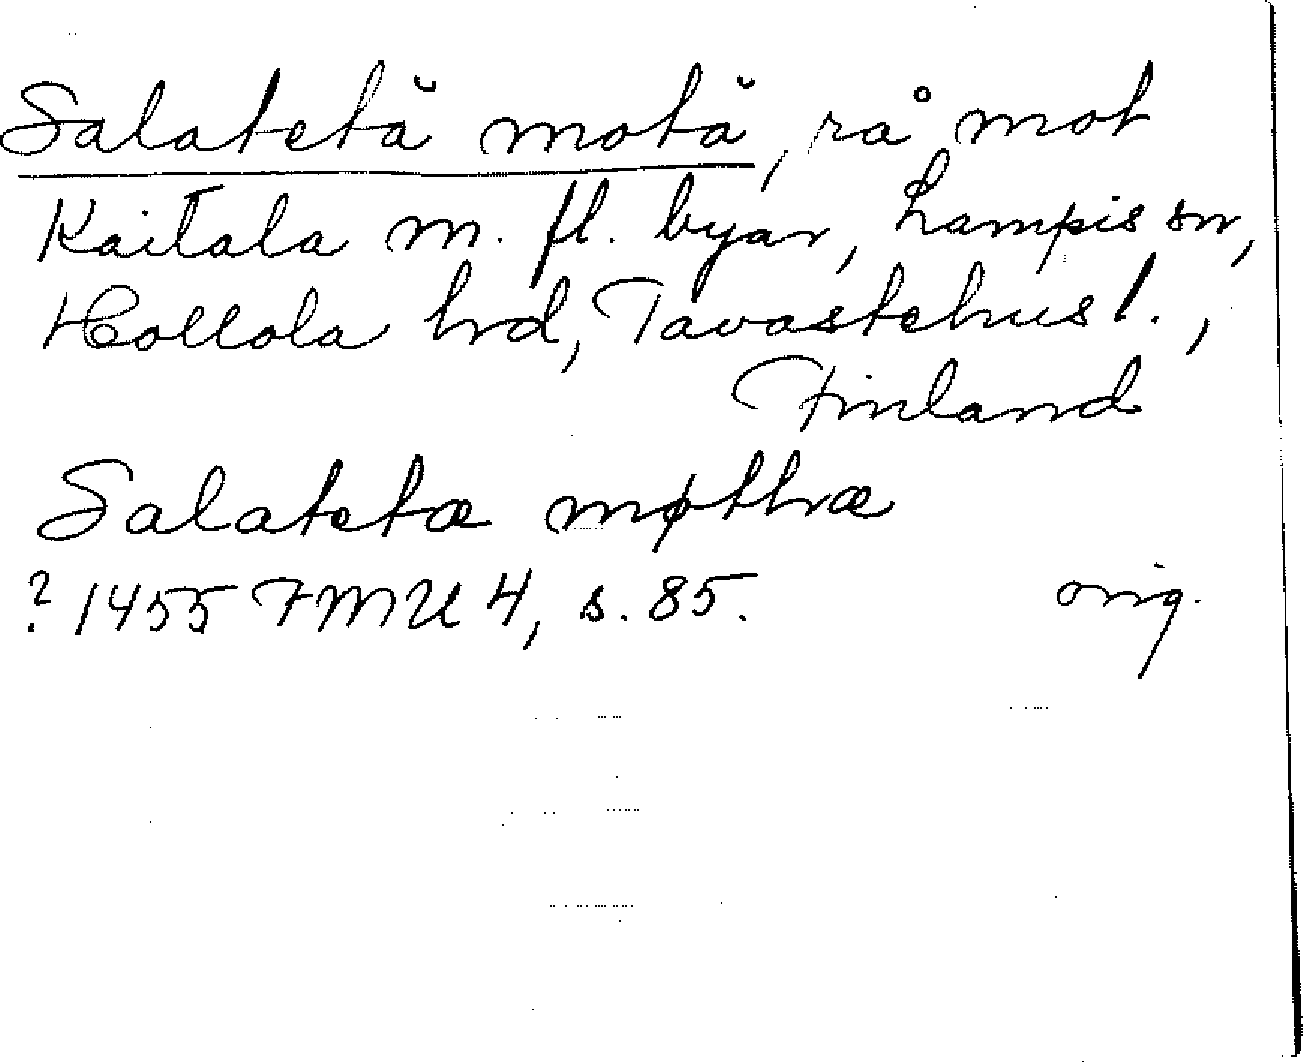 Salatetä motä, rå mot
Kaitala m. fl. byar, Lampis sn,
Hollola hrd, Tavastehus l.,
Finland
Salatetæ møthræ
? 1455 FMU 4, s. 85. orig.